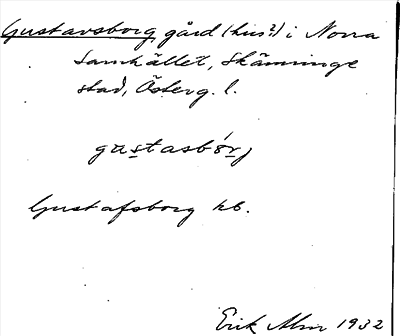 Gustavsborg, gård (hus?) i Norra
Samhället, Skänninge
stad, Österg. l.
gustasbórj
Gustafsborg kb.
Erik Alm 1932